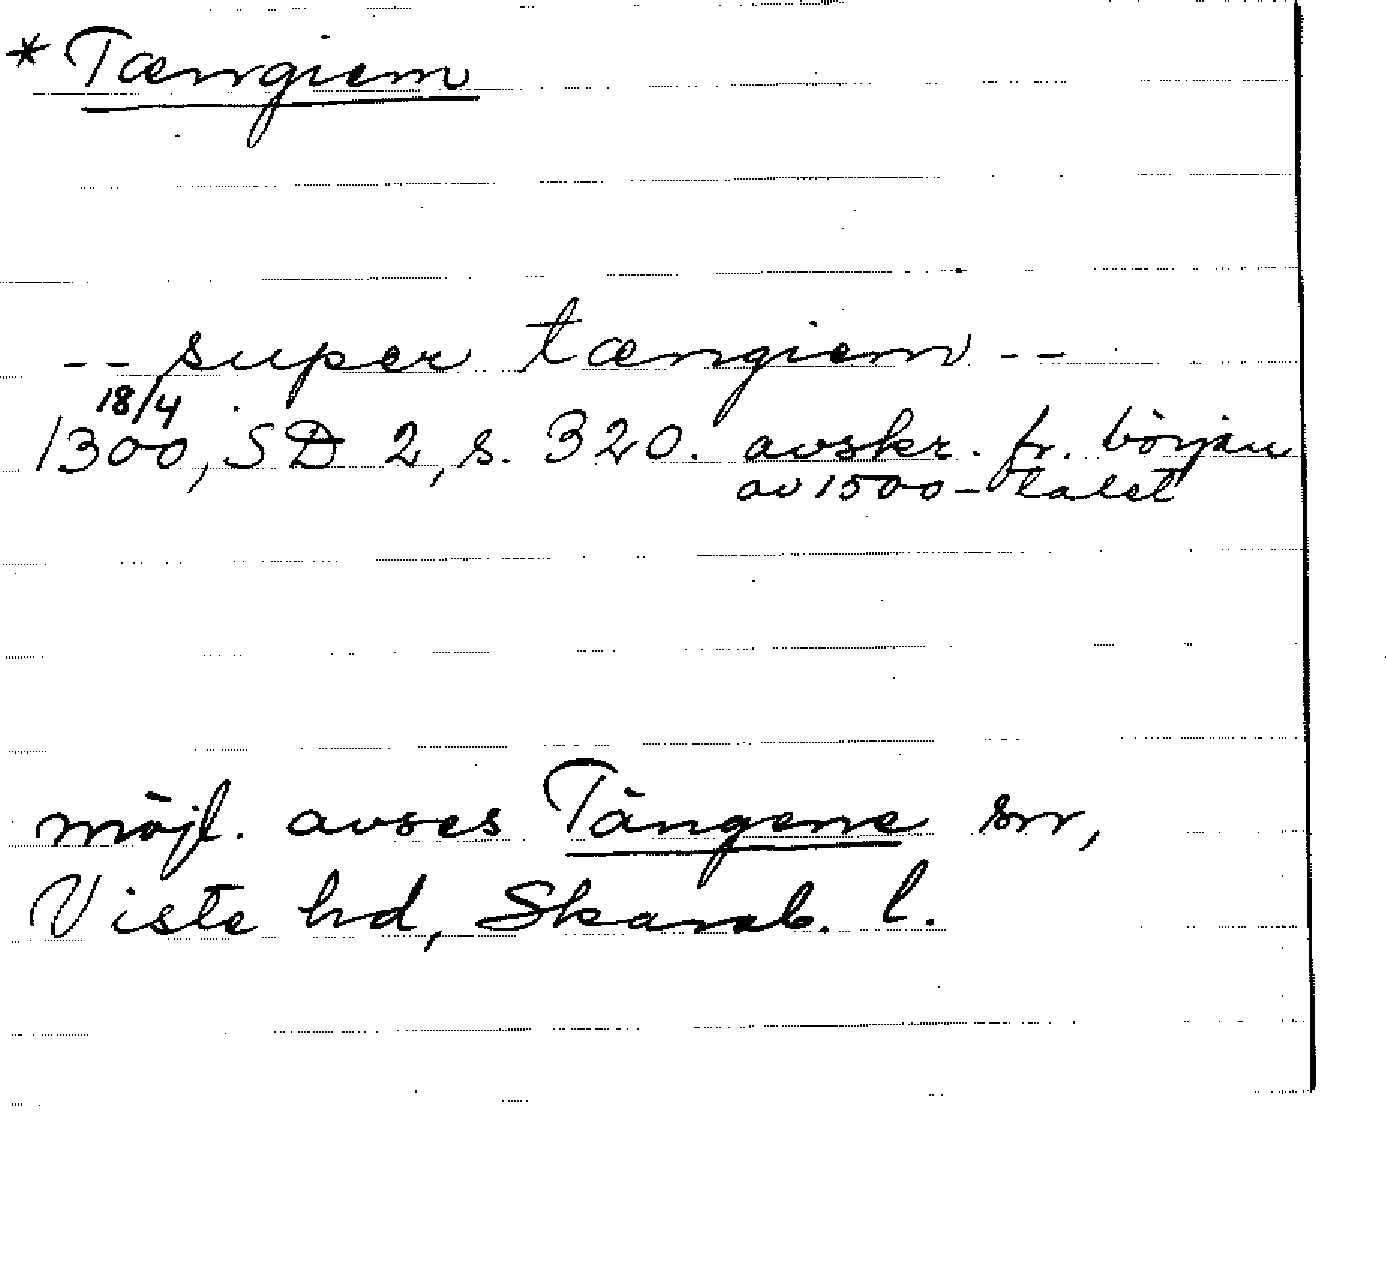 * Tængiem
-- super tængiem --
18/4
1300, SD 2, s. 320. avskr. fr. början
av 1500-talet
möjl. avses Tängene sn,
Viste hd, Skarab. l.